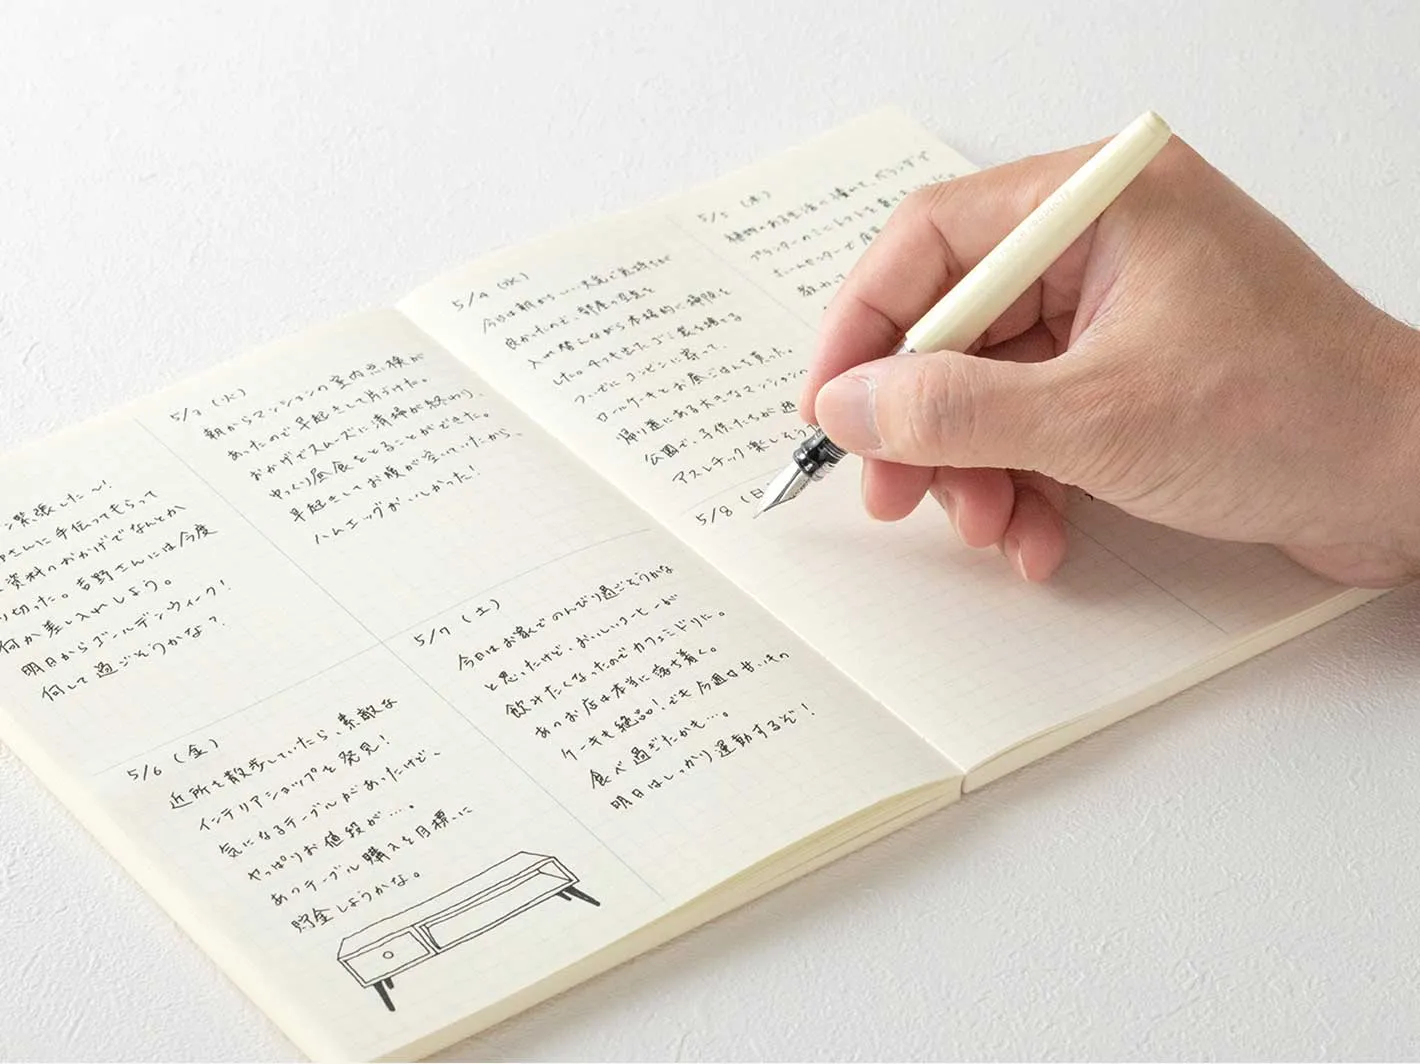 ン緊張した～!
さんに手伝ってもらって
資料のおかげでなんとか
り切った。吉野さんには今度
何か差し入れしよう。
明日からゴールデンウィーク!
何して過ごそうかな?
5/3 (火)
朝からマンションの室内点検が
あったので早起きして片づけた。
おかげでスムーズに清掃が終わり、
ゆっくり昼食をとることができた。
早起きしてお腹が空いていたから、
ハムエッグがおいしかった!
5/4 (水)
今日は朝からいい天気で気持ちが
良かったので、部屋の空気を
入れ替えながら本格的に掃除を
した。4つも出たゴミ袋を捨てる
ついでにコンビニに寄って、
ロールケーキとお昼ごはんを買った。
帰り道にある大きなマンション
公園で、子供たちが遊
アスレチック楽しそう
5/5 (木)
植物のある生活に憧れて、ベランダで
プランターのミニトマトを
ホームセンターで
教わって
5/6 (金)
近所を散歩していたら、素敵な
インテリアショップを発見!
気になるテーブルがあったけど、
やっぱりお値段が…。
あのテーブル購入を目標に
貯金しようかな。
5/7 (土)
今日はお家でのんびり過ごそうかな
と思ったけど、おいしいコーヒーが
飲みたくなったのでカフェミドリに。
あのお店は本当に落ち着く。
ケーキも絶品!でも今週は甘いもの
食べ過ぎたかも…。
明日はしっかり運動するぞ!
5/8 (日